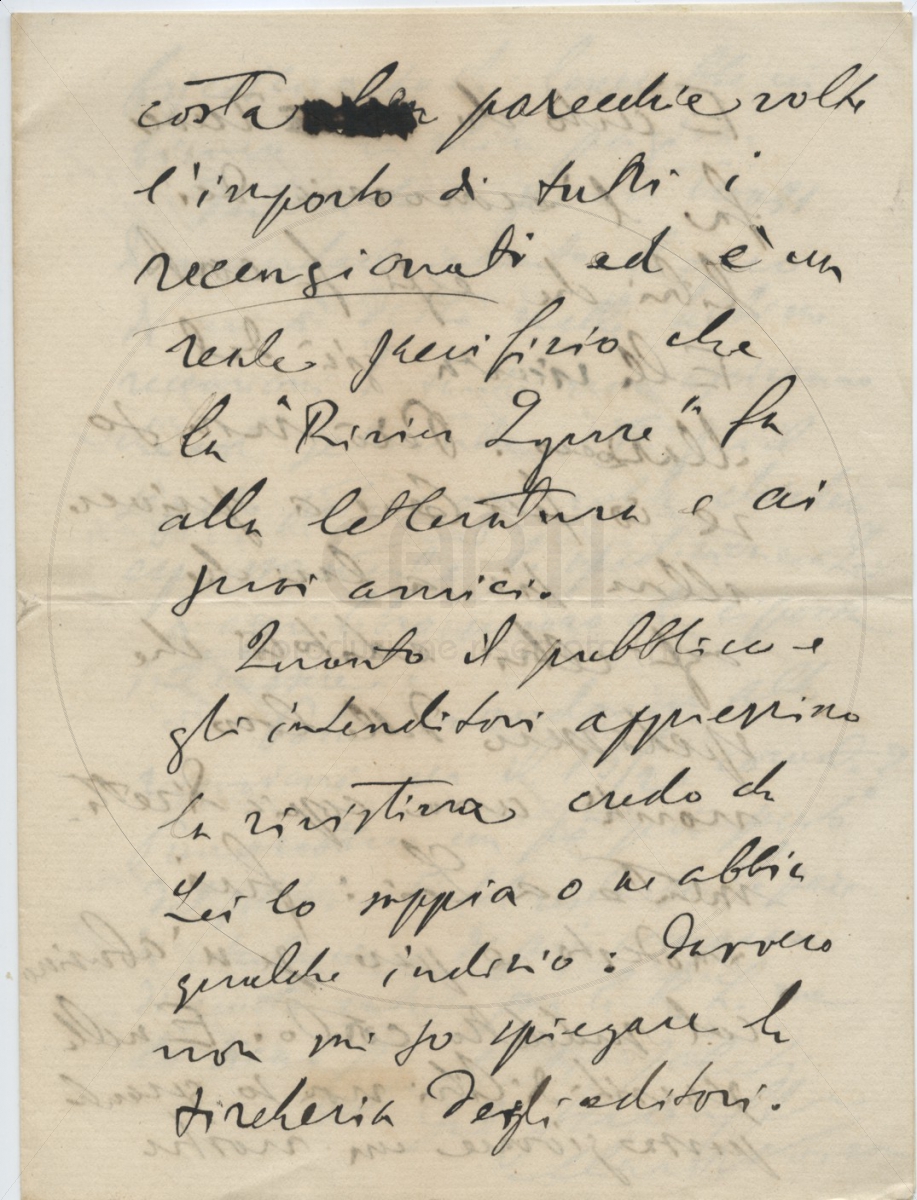 costa parecchie volte
l'importo di tutti i
recensionati ed è un
reale sacrifizio che
la "Riviera Ligure" fa
alla letteratura e ai
suoi amici.
Quanto il pubblico e
gli intenditori apprezzino
la rivistina credo che
Lei lo sappia o ne abbia
qualche indizio: Davvero
non mi so spiegare la
tircheria degli editori.